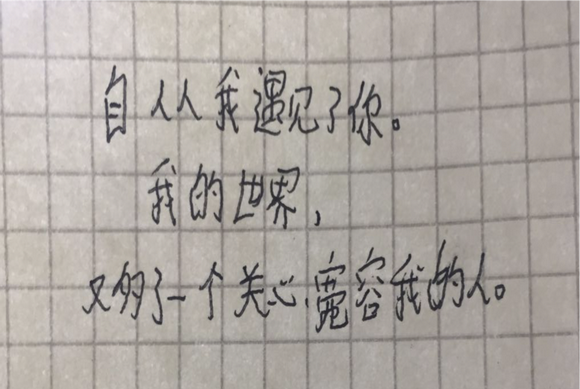 自从我遇见了你。
我的世界,
又多了一个关心、宽容我的人。